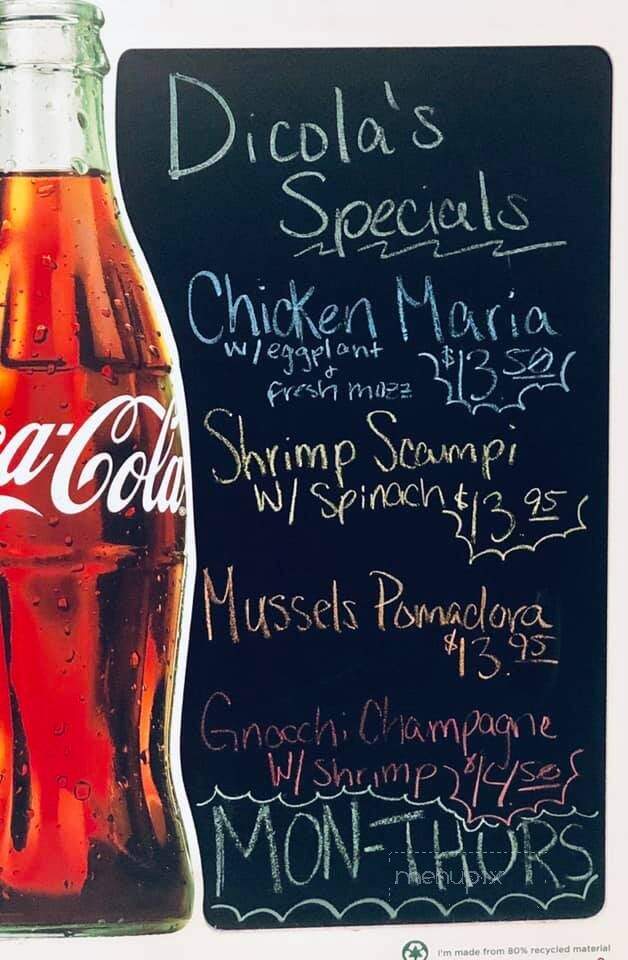 Dicola's
Specials
Chicken Maria
w/eggplant
+
fresh mozz
$13.50
Shrimp Scampi
w/ Spinach $13.95
Mussels Pomadora
$13.95
Gnocchi Champagne
w/ shrimp $14.50
MON-THURS
menupix
a-Cola
I'm made from 80% recycled material